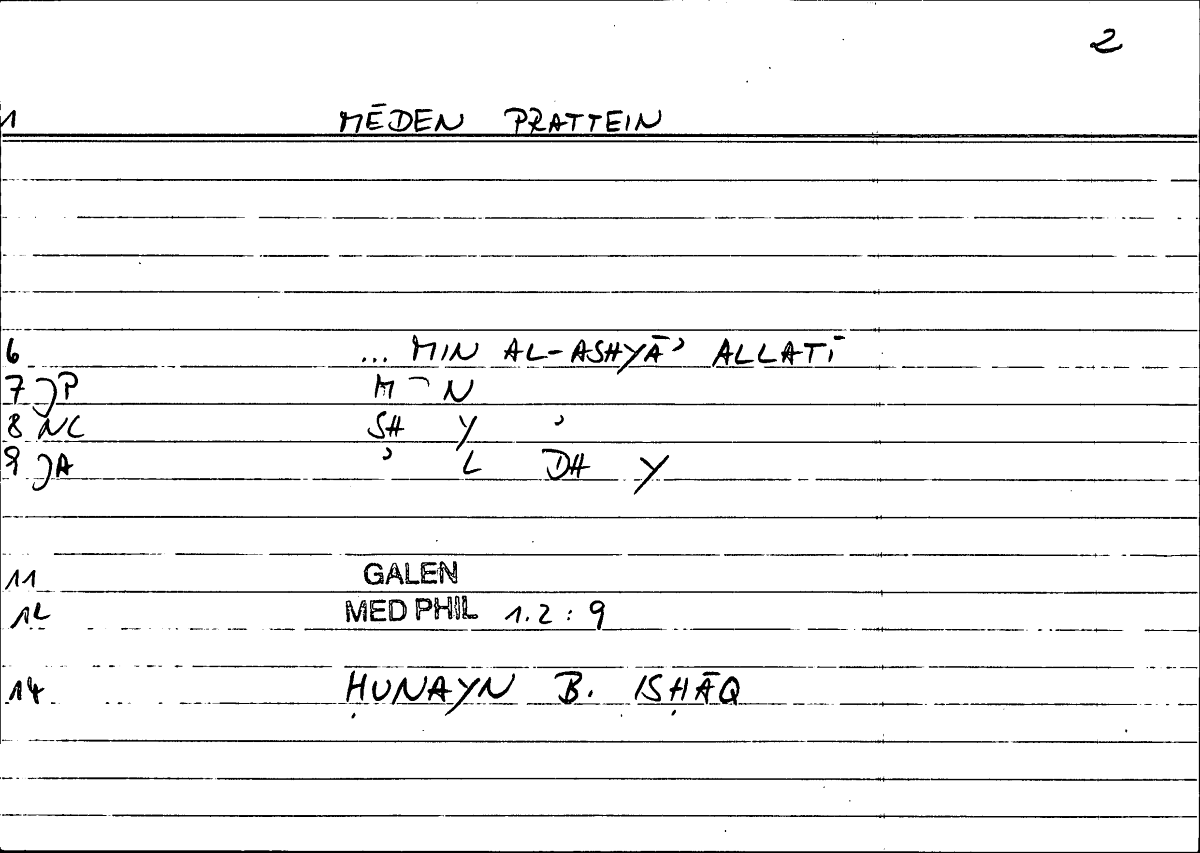 2
1 MĒDEN PRATTEIN
6 ... MIN AL-ASHYĀʾ ALLATĪ
7 JP M ‾ N
8 NC SH Y ʾ
9 JA ʾ L DH Y
11 GALEN
12 MED PHIL 1.2 : 9
14 ḤUNAYN B. ISḤĀQ